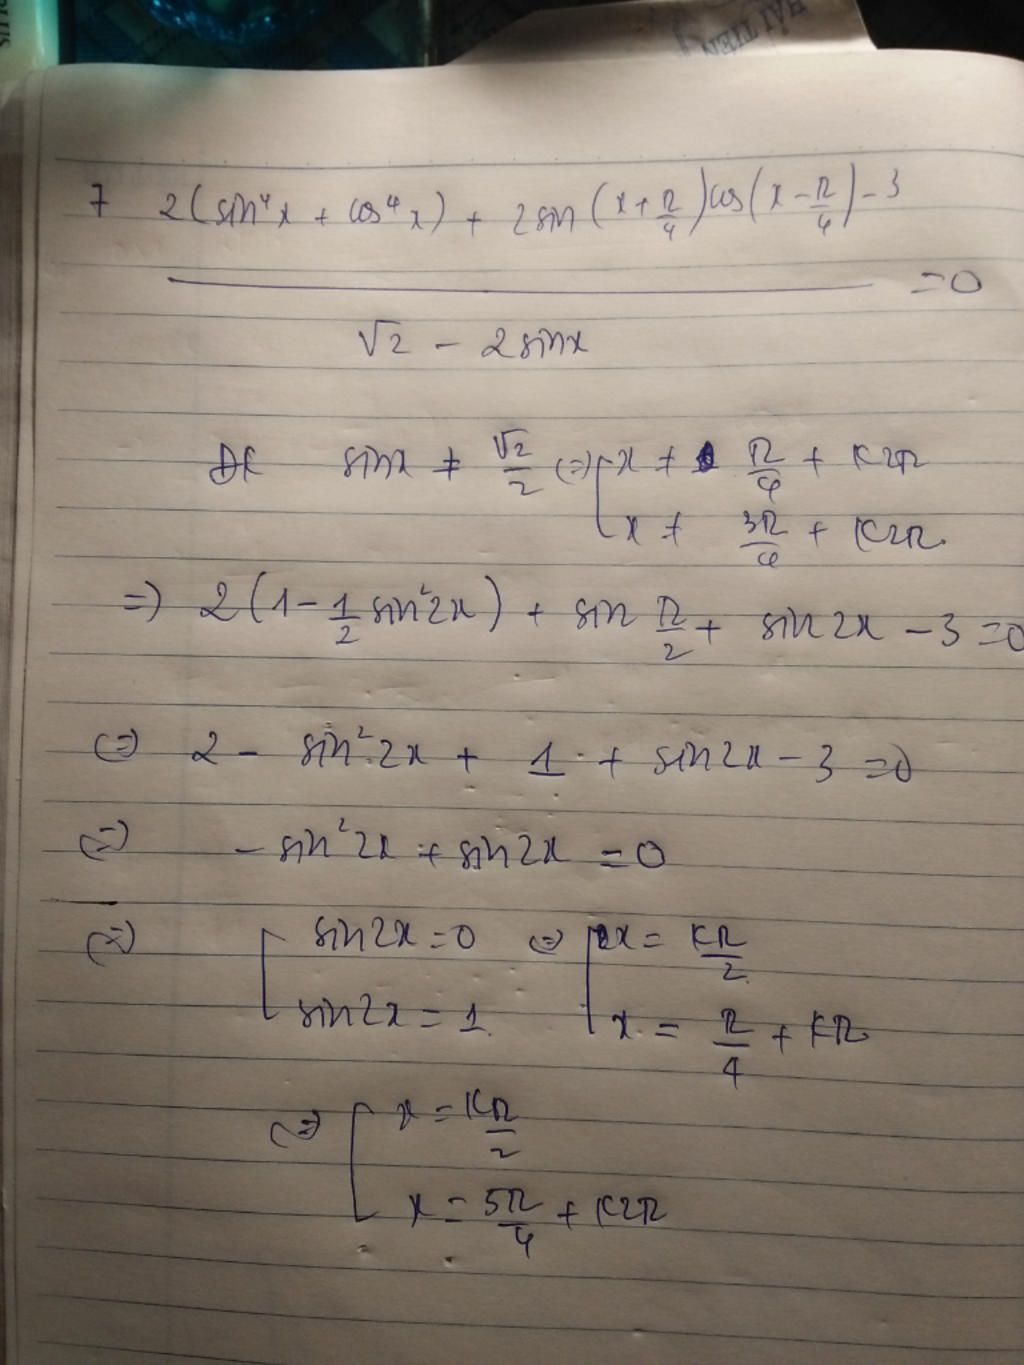 HẢI TIẾN
7 2(sin⁴x + cos⁴x) + 2sin(x+π/4)cos(x−π/4)−3
=0
√2 − 2sinx
ĐK sinx ≠ √2/2 (=) [x ≠ π/4 + K2π
x ≠ 3π/4 + K2π
=) 2(1−1/2 sin²2x) + sin π/2 + sin2x −3=0
(=) 2 − sin²2x + 1 + sin2x − 3 =0
(=) − sin²2x + sin2x = 0
(=) [ sin2x=0 (=) [x= Kπ/2
sin2x = 1 x = π/4 + Kπ
(=) [ x = Kπ/2
x = 5π/4 + K2π